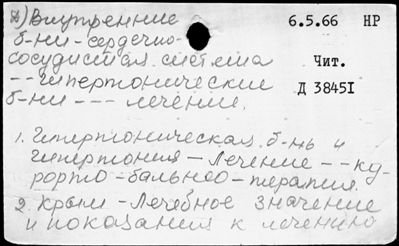 Д) Внутренние
б-ни-сердечно-
сосудистая система
-- гипертонические
б-ни --- лечение.
6.5.66 НР
Чит.
Д 38451
1. Гипертоническая б-нь и
гипертония - лечение -- ку-
рорто-бальнео-терапия.
2. Крым - лечебное значение
и показания к лечению